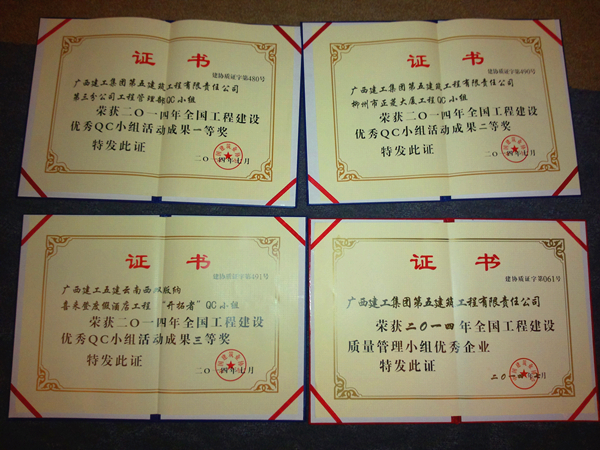 证 书
建协质证字第480号
广西建工集团第五建筑工程有限责任公司
第三分公司工程管理部QC小组
荣获二〇一四年全国工程建设
优秀QC小组活动成果一等奖
特发此证
二〇一四年七月
证 书
建协质证字第490号
广西建工集团第五建筑工程有限责任公司
柳州市正菱大厦工程QC小组
荣获二〇一四年全国工程建设
优秀QC小组活动成果二等奖
特发此证
二〇一四年七月
证 书
建协质证字第401号
广西建工五建云南西双版纳
喜来登度假酒店工程“开拓者”QC小组
荣获二〇一四年全国工程建设
优秀QC小组活动成果三等奖
特发此证
二〇一四年七月
证 书
建协质证字第061号
广西建工集团第五建筑工程有限责任公司
荣获二〇一四年全国工程建设
质量管理小组优秀企业
特发此证
二〇一四年七月